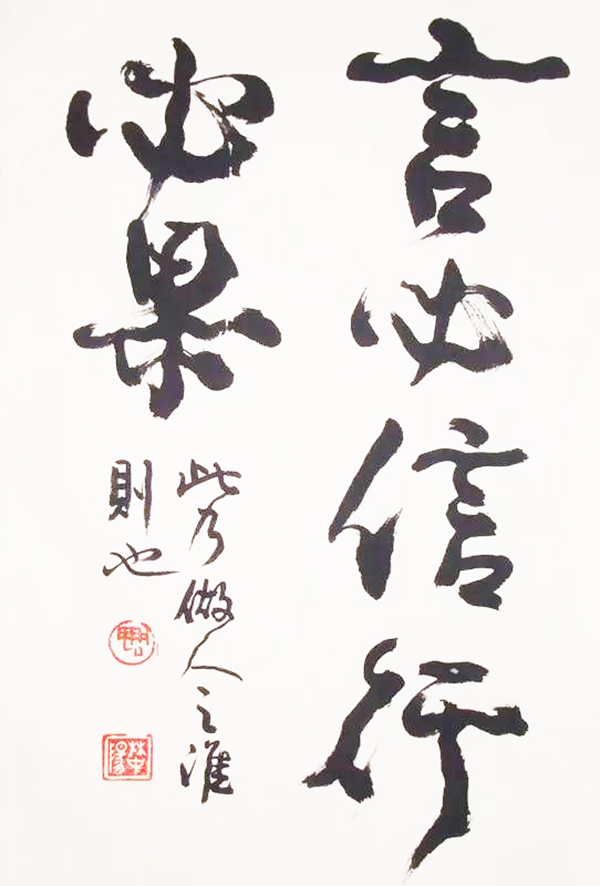 言必信行
必果
此乃做人之準
則也